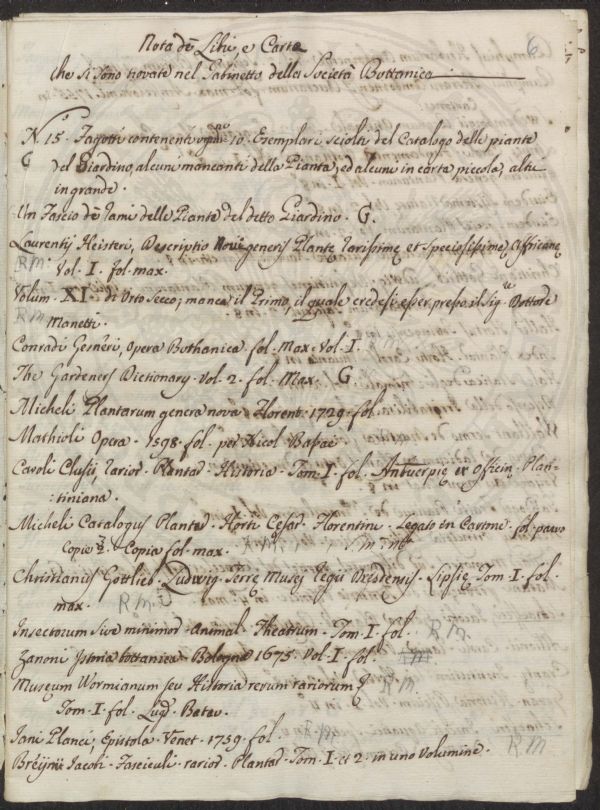 6
Nota de Libri, e Carte
che si sono trovate nel Gabinetto della Società Bottanica
N. 15. Fagotti contenenti ogn.no 10. Esemplari sciolti del Catalogo delle piante
G del Giardino, alcuni mancanti della Pianta, ed alcuni in carta piccola, altri
in grande.
Un Fascio de Rami delle Piante del detto Giardino. G.
Laurentij Heisteri, Descriptio Novi generis Plantę rarissimę et speciosissimę Africanę
RM. Vol. I. fol. max.
Volum. XI. di Orto Secco; manca il Primo, il quale credesi esser presso il Sig.re Dottore
RM. Manetti.
Conradi Gesneri, Opera Bothanica fol. Max. Vol. I. RM.
The Gardeners Dictionary. Vol. 2. fol. Max. G.
Micheli Plantarum genera nova Florent. 1729. fol.
Mathioli Opera. 1598. fol. per Nicol. Bassaei.
Caroli Clusij, rarior. Plantar. Historia. Tom. I. fol. Antuerpię ex Officinę Plan=
:tiniana.
Micheli Catalogus Plantar. Horti Cesar. Florentini. Legato in Cartone. fol. pavo
Copie 3. Copia fol. max.
Christianis Gottlieb. Ludwig. Terrę Musej Regii Dresdensis. Lipsię Tom. I. fol.
max. RM.
Insectorum sive minimor. Animal. Theatrum. Tom. I. fol. RM.
Zanoni Istoria bottanica Bologna 1675. Vol. I. fol.
Museum Wormianum seu Historia rerum rariorum RM.
Tom. I. fol. Lugd. Batav.
Jani Planci, Epistola. Venet. 1759. fol. RM
Breijnii Jacobi. Fasciculi. rarior. Plantar. Tom. I. et 2. in uno Volumine. RM